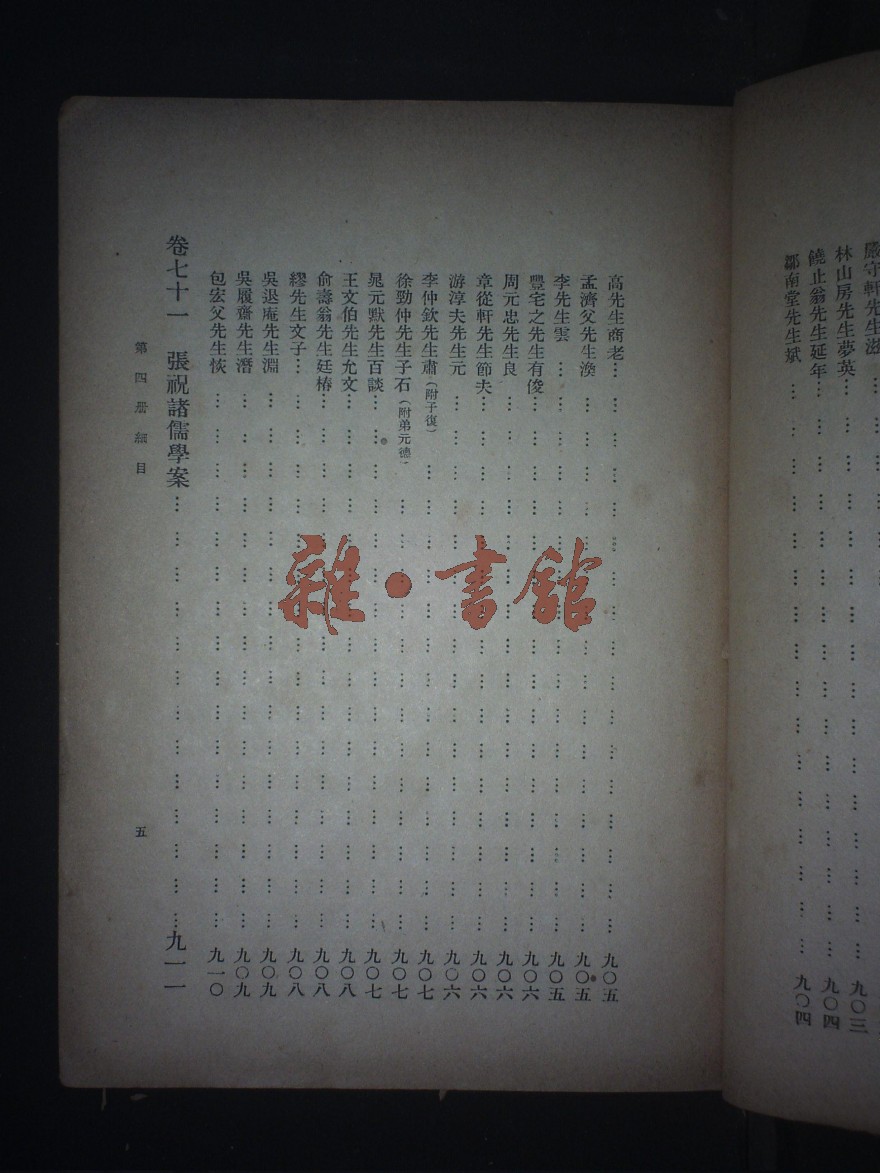 嚴守軒先生滋
九〇三
林山房先生夢英……九〇四
饒止翁先生延年……九〇四
鄒南堂先生斌……九〇四
高先生商老……九〇五
孟濟父先生渙……九〇五
李先生雲……九〇五
豐宅之先生有俊……九〇六
周元忠先生良……九〇六
章從軒先生節夫……九〇六
游淳夫先生元……九〇六
李仲欽先生肅（附子復）……九〇七
徐勁仲先生子石（附弟元德）……九〇七
晁元默先生百談……九〇七
王文伯先生允文……九〇八
俞壽翁先生廷椿……九〇八
繆先生文子……九〇八
吳退庵先生淵……九〇九
吳履齋先生潛……九〇九
包宏父先生恢……九一〇
卷七十一　張祝諸儒學案……九一一
第四册細目
五
雜·書館